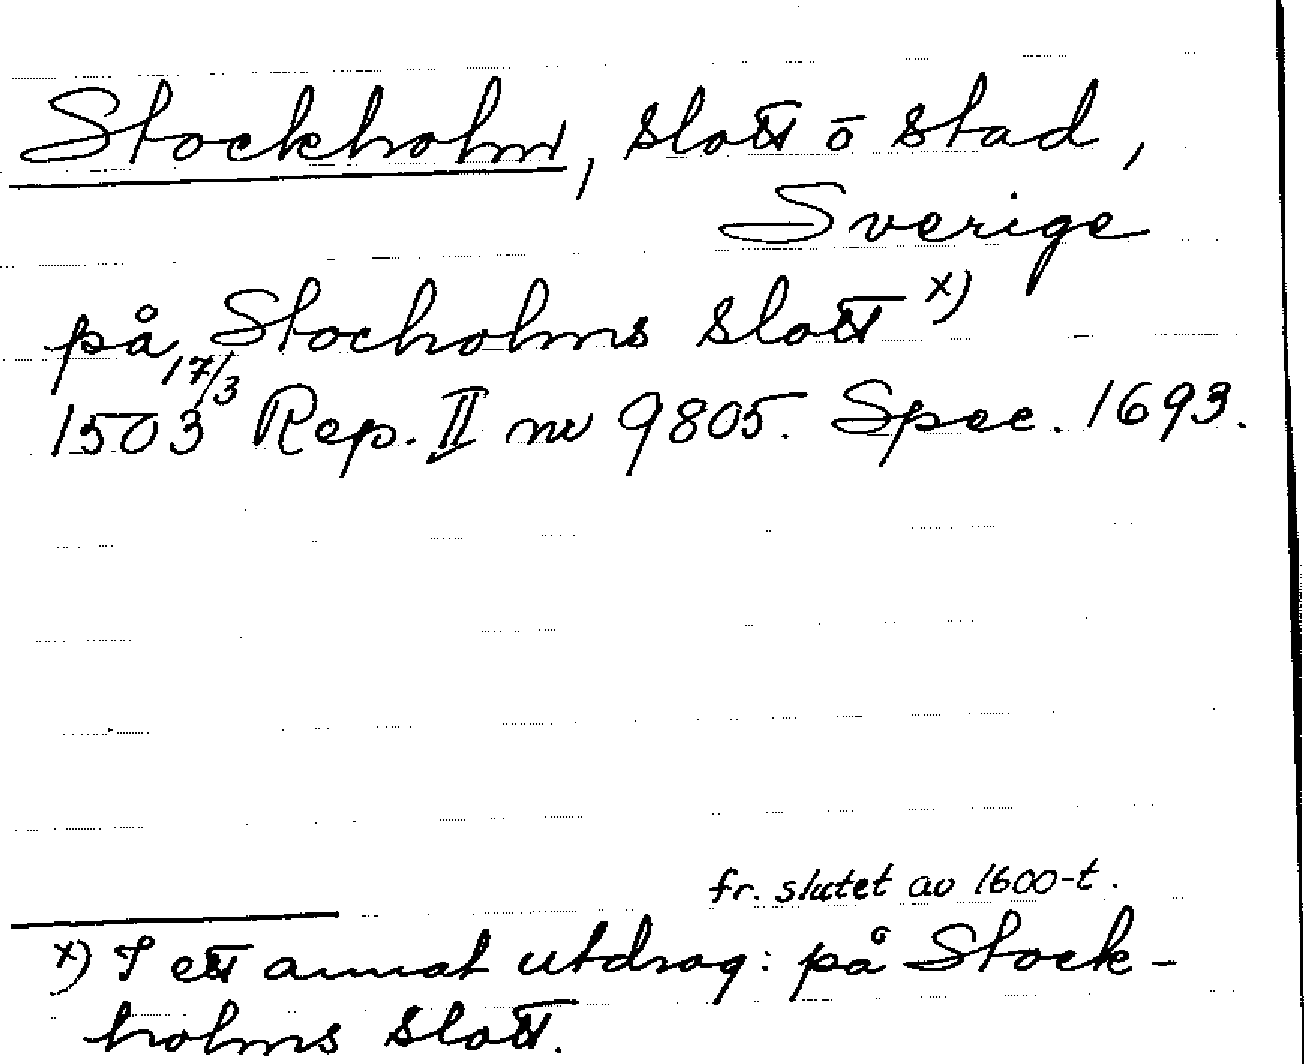 Stockholm, slott o stad,
Sverige
på Stocholms slott x)
17/3
1503 Rep. II nr 9805. Spec. 1693.
fr. slutet av 1600-t.
x) I ett annat utdrag: på Stock-
holms slott.